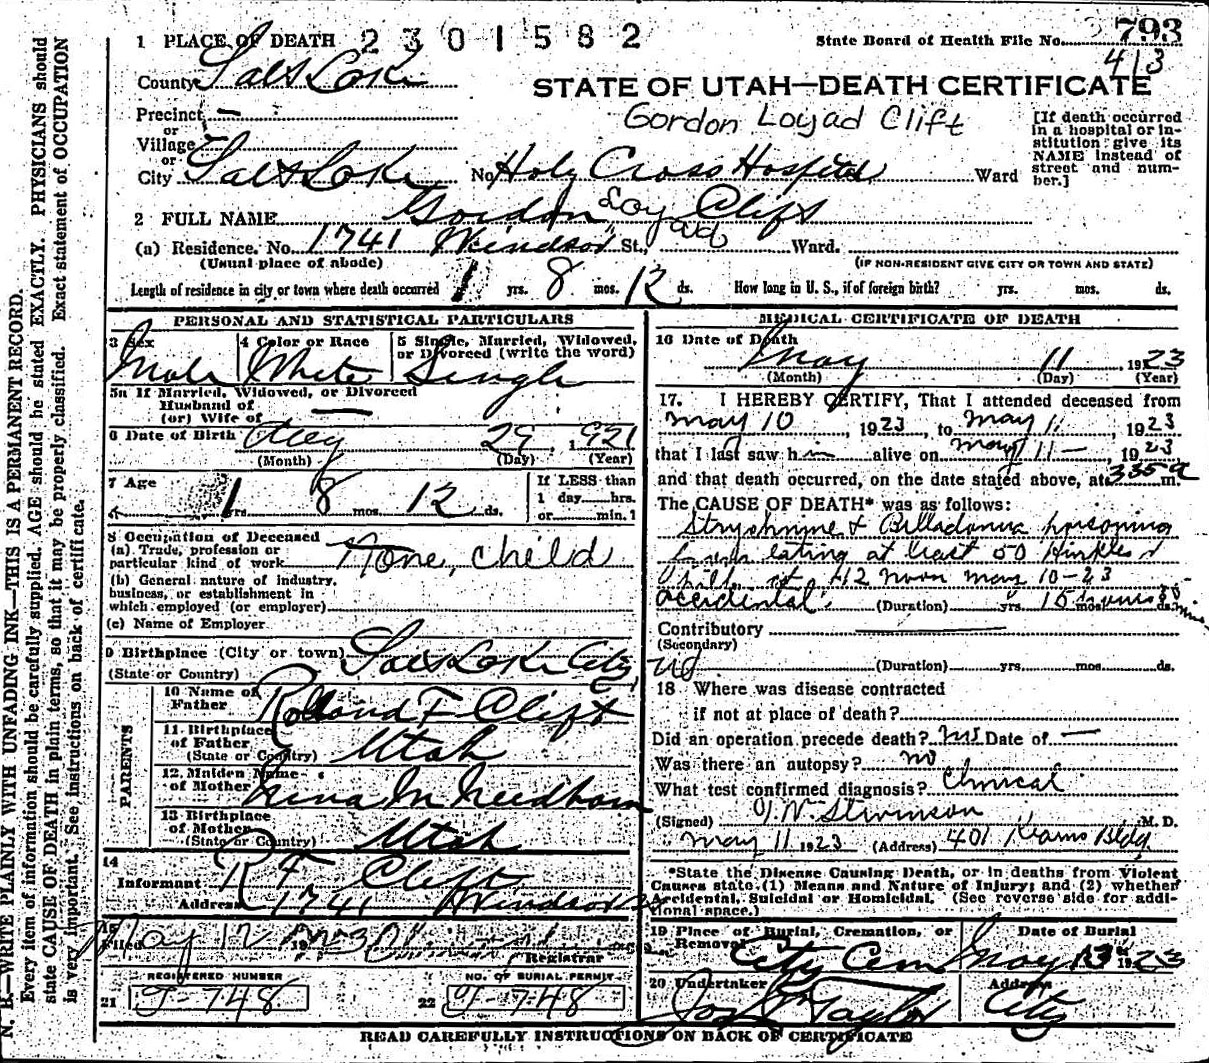 1 PLACE OF DEATH 2301582
State Board of Health File No. 793
413
County Salt Lake
STATE OF UTAH—DEATH CERTIFICATE
Precinct —
Gordon Loyad Clift
or
Village
or
City Salt Lake No. Holy Cross Hospital, Ward
[If death occurred
in a hospital or in-
stitution give its
NAME instead of
street and num-
ber.]
2 FULL NAME Gordon Loyad Clift
(a) Residence. No. 1741 Windsor St., Ward.
(Usual place of abode) (IF NON-RESIDENT GIVE CITY OR TOWN AND STATE)
Length of residence in city or town where death occurred 1 yrs. 8 mos. 12 ds. How long in U. S., if of foreign birth? yrs. mos. ds.
PERSONAL AND STATISTICAL PARTICULARS
3 Sex 4 Color or Race 5 Single, Married, Widowed,
or Divorced (write the word)
Male White Single
5a If Married, Widowed, or Divorced
Husband of
(or) Wife of —
6 Date of Birth Aug 29, 1921
(Month) (Day) (Year)
7 Age 1 yrs. 8 mos. 12 ds.
If LESS than
1 day hrs.
or min.
8 Occupation of Deceased
(a) Trade, profession or
particular kind of work None, child
(b) General nature of industry,
business, or establishment in
which employed (or employer)
(c) Name of Employer
9 Birthplace (City or town) Salt Lake City
(State or Country)
PARENTS
10 Name of
Father Rolland F Clift
11. Birthplace
of Father
(State or Country) Utah
12. Maiden Name
of Mother M Needham
13 Birthplace
of Mother
(State or Country) Utah
14
Informant R F Clift
Address 1741 Windsor
15
Filed May 12 1923
Registrar
REGISTERED NUMBER NO. OF BURIAL PERMIT
21 J-748 22 J-748
MEDICAL CERTIFICATE OF DEATH
16 Date of Death
May 11, 1923
(Month) (Day) (Year)
17. I HEREBY CERTIFY, That I attended deceased from
May 10, 1923, to May 11, 1923
that I last saw him alive on May 11 —, 1923
and that death occurred, on the date stated above, at 335 a m.
The CAUSE OF DEATH* was as follows:
Strychnine & Belladonna poisoning
from eating at least 50 Hinkles
Pills at 12 noon May 10-23
accidental. (Duration) yrs. 15 hours mos. ds.
Contributory —
(Secondary)
(Duration) yrs. mos. ds.
18 Where was disease contracted
if not at place of death?
Did an operation precede death? no Date of —
Was there an autopsy? no
What test confirmed diagnosis? Clinical
(Signed) Stevenson M. D.
May 11 1923 (Address) 401 Kearns Bldg.
*State the Disease Causing Death, or in deaths from Violent
Causes state (1) Means and Nature of Injury; and (2) whether
Accidental, Suicidal or Homicidal. (See reverse side for addi-
tional space.)
19 Place of Burial, Cremation, or Date of Burial
Removal City Cem May 13 1923
20 Undertaker Address
Jos Taylor City
READ CAREFULLY INSTRUCTIONS ON BACK OF CERTIFICATE
N. B.—WRITE PLAINLY WITH UNFADING INK—THIS IS A PERMANENT RECORD.
Every item of information should be carefully supplied. AGE should be stated EXACTLY. PHYSICIANS should
state CAUSE OF DEATH in plain terms, so that it may be properly classified. Exact statement of OCCUPATION
is very important. See instructions on back of certificate.